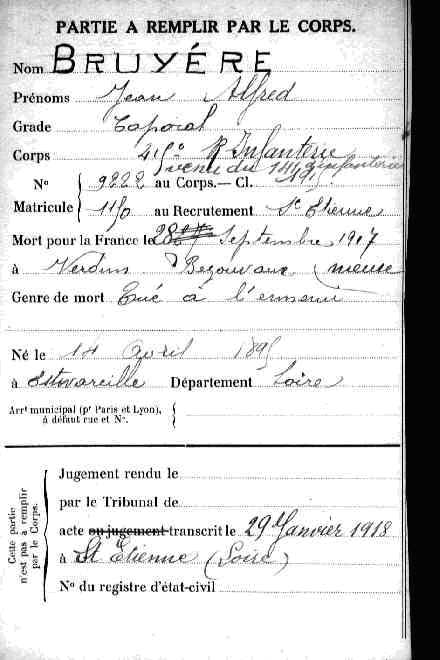 PARTIE A REMPLIR PAR LE CORPS.
Nom BRUYÉRE
Prénoms Jean Alfred
Grade Caporal
Corps 415e R Infanterie
venu du 141 d'infanterie
No 9222 au Corps. — Cl. 1915
Matricule 1150 au Recrutement St Etienne
Mort pour la France le 28 Septembre 1917
à Verdun Bezonvaux (meuse
Genre de mort Tué à l'ennemi
Né le 14 Avril 1895
à Estivareille Département Loire
Arrt municipal (pr Paris et Lyon),
à défaut rue et No.
Cette partie
n'est pas à remplir
par le Corps.
Jugement rendu le
par le Tribunal de
acte ou jugement transcrit le 29 Janvier 1918
à St Étienne (Loire)
No du registre d'état-civil